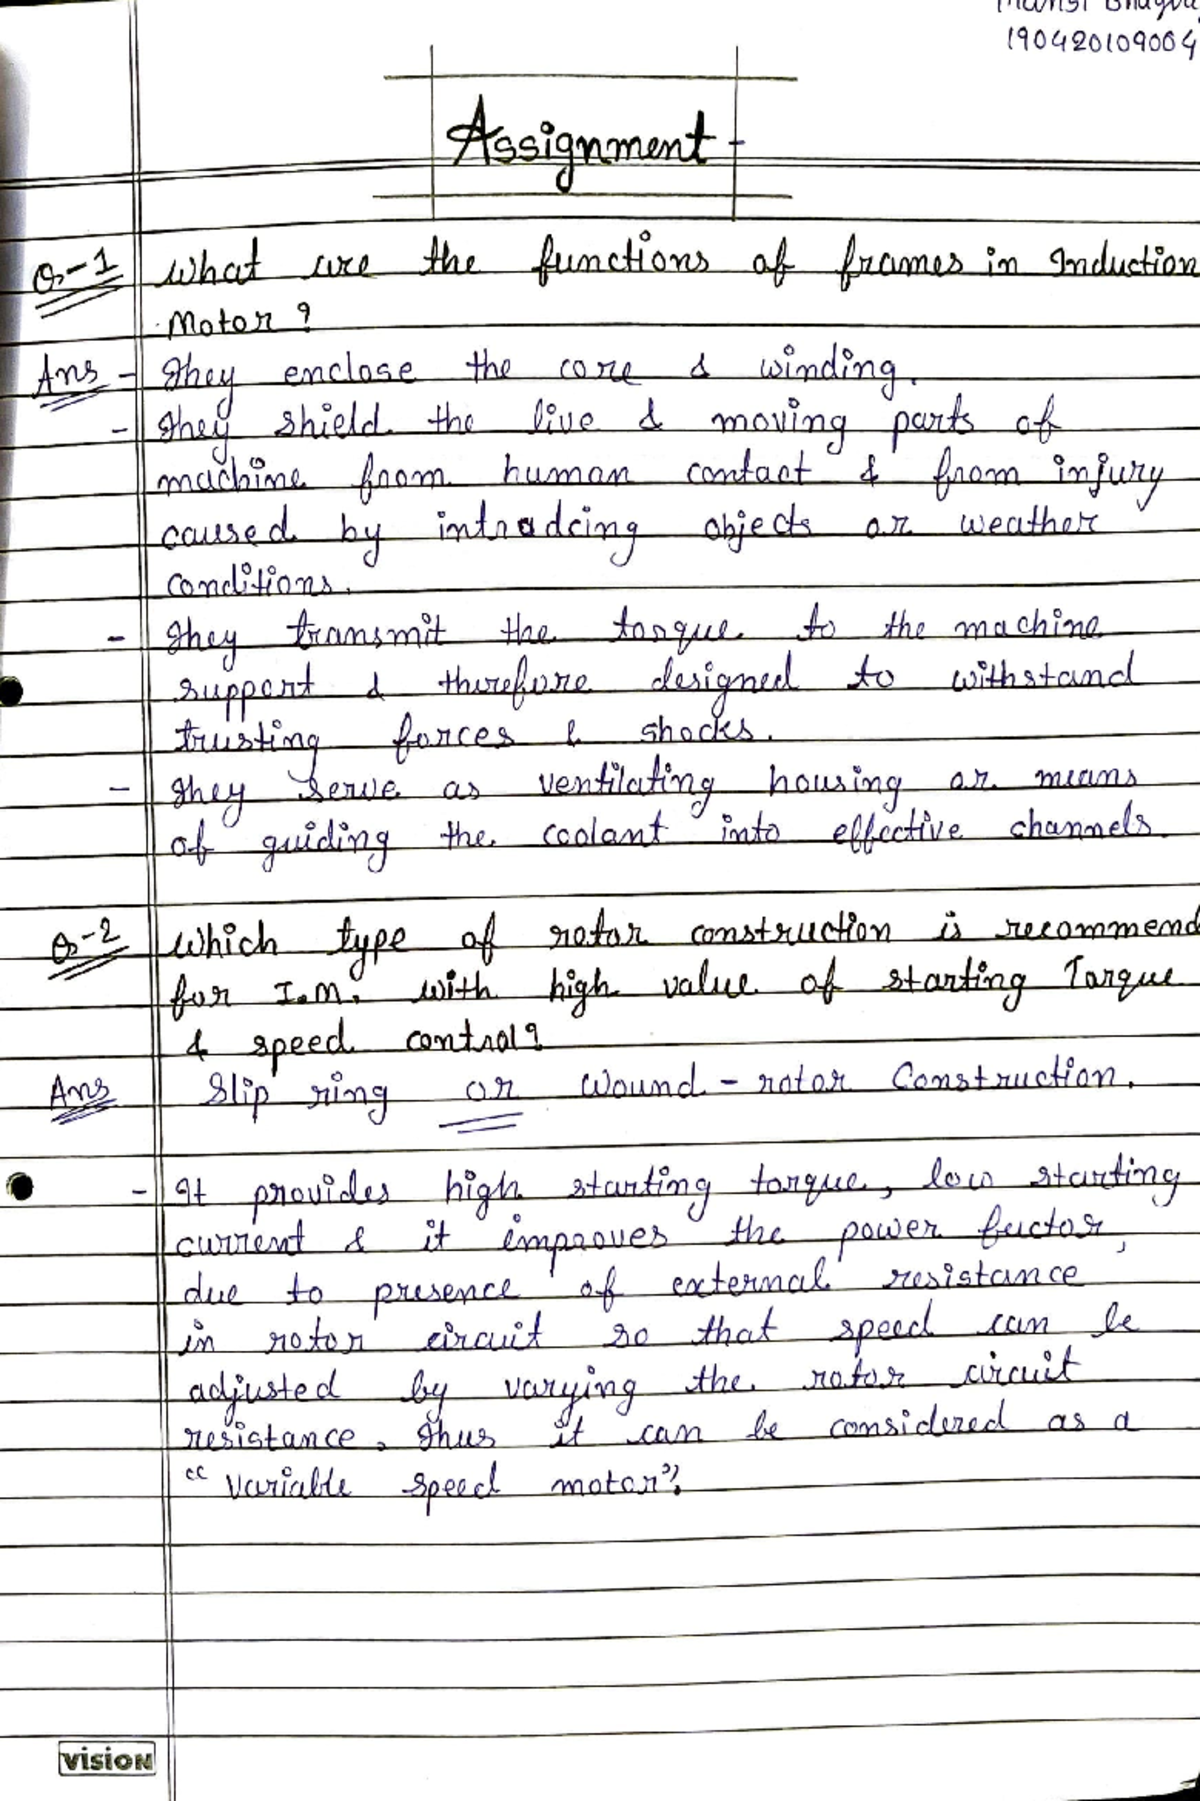 190420109004
Assignment -
Q-1 What are the functions of frames in Induction
Motor?
Ans - They enclose the core & winding.
- They shield the live & moving parts of
machine from human contact & from injury
caused by introdcing objects or weather
conditions.
- They transmit the torque to the machine
support & therefore designed to withstand
trusting forces & shocks.
- They serve as ventilating housing or means
of guiding the coolant into effective channels.
Q-2 Which type of rotor construction is recommend
for I.M. with high value of starting Torque
& speed control?
Ans Slip ring or Wound - rotor Construction.
- It provides high starting torque, low starting
current & it improves the power factor,
due to presence of external resistance
in rotor circuit so that speed can be
adjusted by varying the rotor circuit
resistance. Thus it can be considered as a
"variable speed motor".
VISION